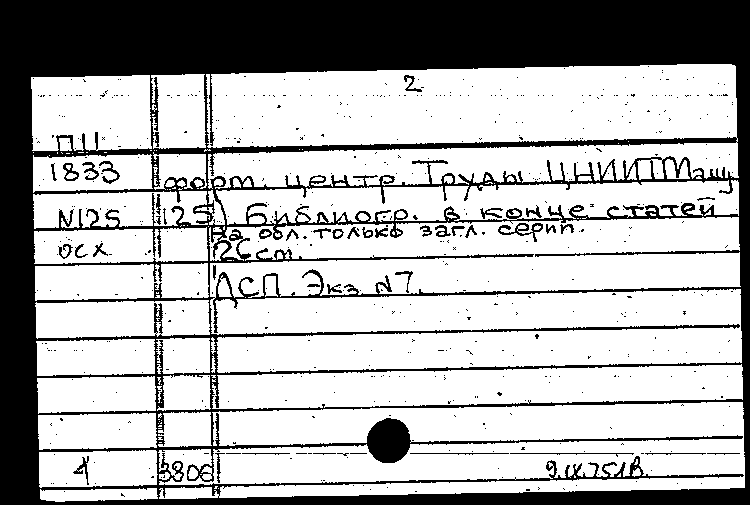 2
П11
1833 форт. центр. Труды ЦНИИТМаш
N125 125) Библиогр. в конце статей
На обл. только загл. серии.
осх 26 cm.
ДСП. Экз N7.
4 3806 9.IX.75